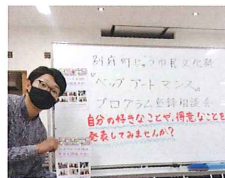 別府町じゅう市民文化祭
『ベップ アート マンス』
プログラム登録相談会
自分の好きなことや、得意なことを
発表してみませんか？